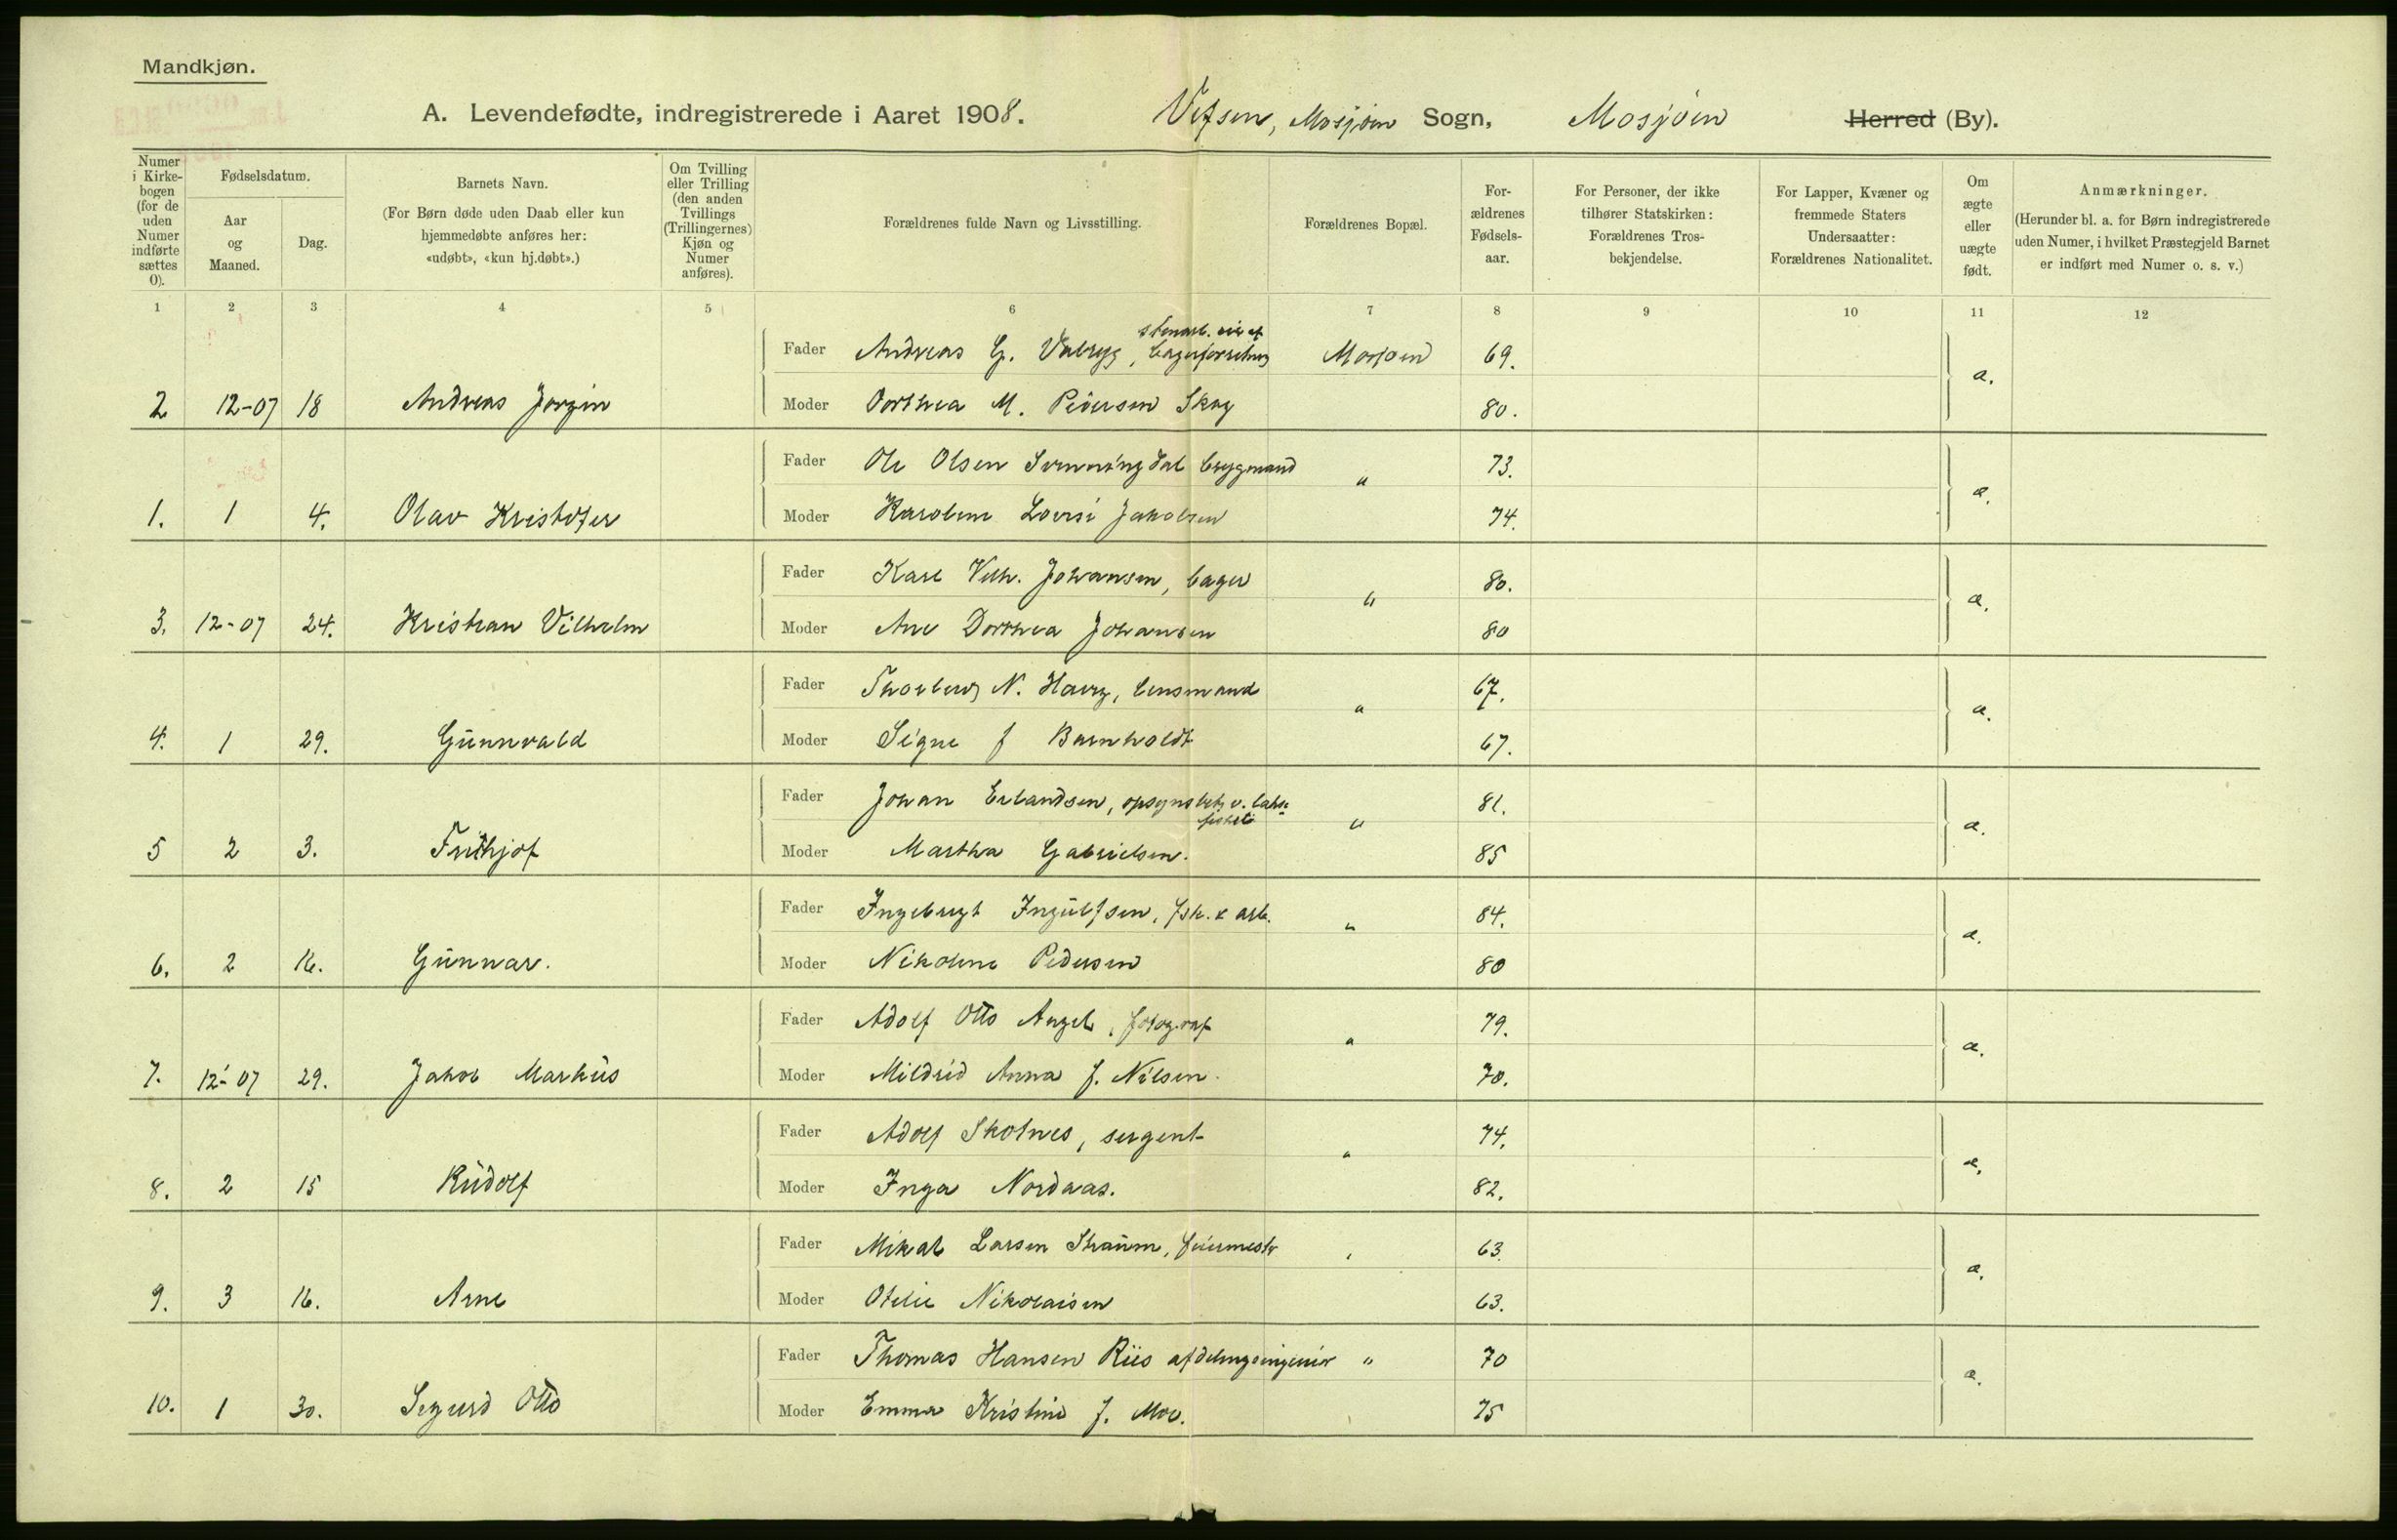 Mandkjøn.
A. Levendefødte, indregistrerede i Aaret 1908. Vefsen, Mosjøen Sogn, Mosjøen Herred (By).
Numer i Kirkebogen (for de uden Numer indførte sættes 0).
Fødselsdatum.
Aar og Maaned.
Dag.
Barnets Navn.
(For Børn døde uden Daab eller kun hjemmedøbte anføres her: «udøbt», «kun hj.døbt».)
Om Tvilling eller Trilling (den anden Tvillings (Trillingernes) Kjøn og Numer anføres).
Forældrenes fulde Navn og Livsstilling.
Forældrenes Bopæl.
Forældrenes Fødselsaar.
For Personer, der ikke tilhører Statskirken: Forældrenes Trosbekjendelse.
For Lapper, Kvæner og fremmede Staters Undersaatter: Forældrenes Nationalitet.
Om ægte eller uægte født.
Anmærkninger.
(Herunder bl. a. for Børn indregistrerede uden Numer, i hvilket Præstegjeld Barnet er indført med Numer o. s. v.)
1 2 3 4 5 6 7 8 9 10 11 12
Fader Andreas G. Mosjøen 69.
2 12-07 18 Andreas Jørgin Moder Dorthea M. Pedersen Skog 80. æ.
Fader Ole Olsen Svenningdal bryggmand " 73.
1. 1 4. Olav Kristofer Moder Karoline Lovise Jakobsen 74. æ.
Fader Karl Vilh. Johansen, bager " 80.
3. 12-07 24. Kristian Vilhelm Moder Ane Dorthea Johansen 80 æ.
Fader Thorberg N. Haug, lensmand " 67.
4. 1 29. Gunnvald Moder Signe f Barnholdt 67. æ.
Fader Johan Erlandsen, opsynsbetj. v. lakse-
fiskeri " 81.
5 2 3. Frithjof Moder Martha Gabrielsen. 85 æ.
Fader Ingebrigt Ingulfsen, fisk. & arb. " 84.
6. 2 16. Gunnar. Moder Nikoline Pedersen 80 æ.
Fader Adolf Otto Angel, fotograf " 79.
7. 12-07 29. Jakob Markus Moder Mildrid Anna f. Nilsen. 70. æ.
Fader Adolf Skotnes, sergent " 74.
8. 2 15 Rudolf Moder Inga Nordaas. 82. æ.
Fader Mikal Larsen Straum, feiermester " 63.
9. 3 16. Arne Moder Otelie Nikolaisen 63. æ.
Fader Thomas Hansen Riis afdelingsingeniør " 70
10. 1 30. Sigurd Otto Moder Emma Kristine f. Moe. 75 æ.